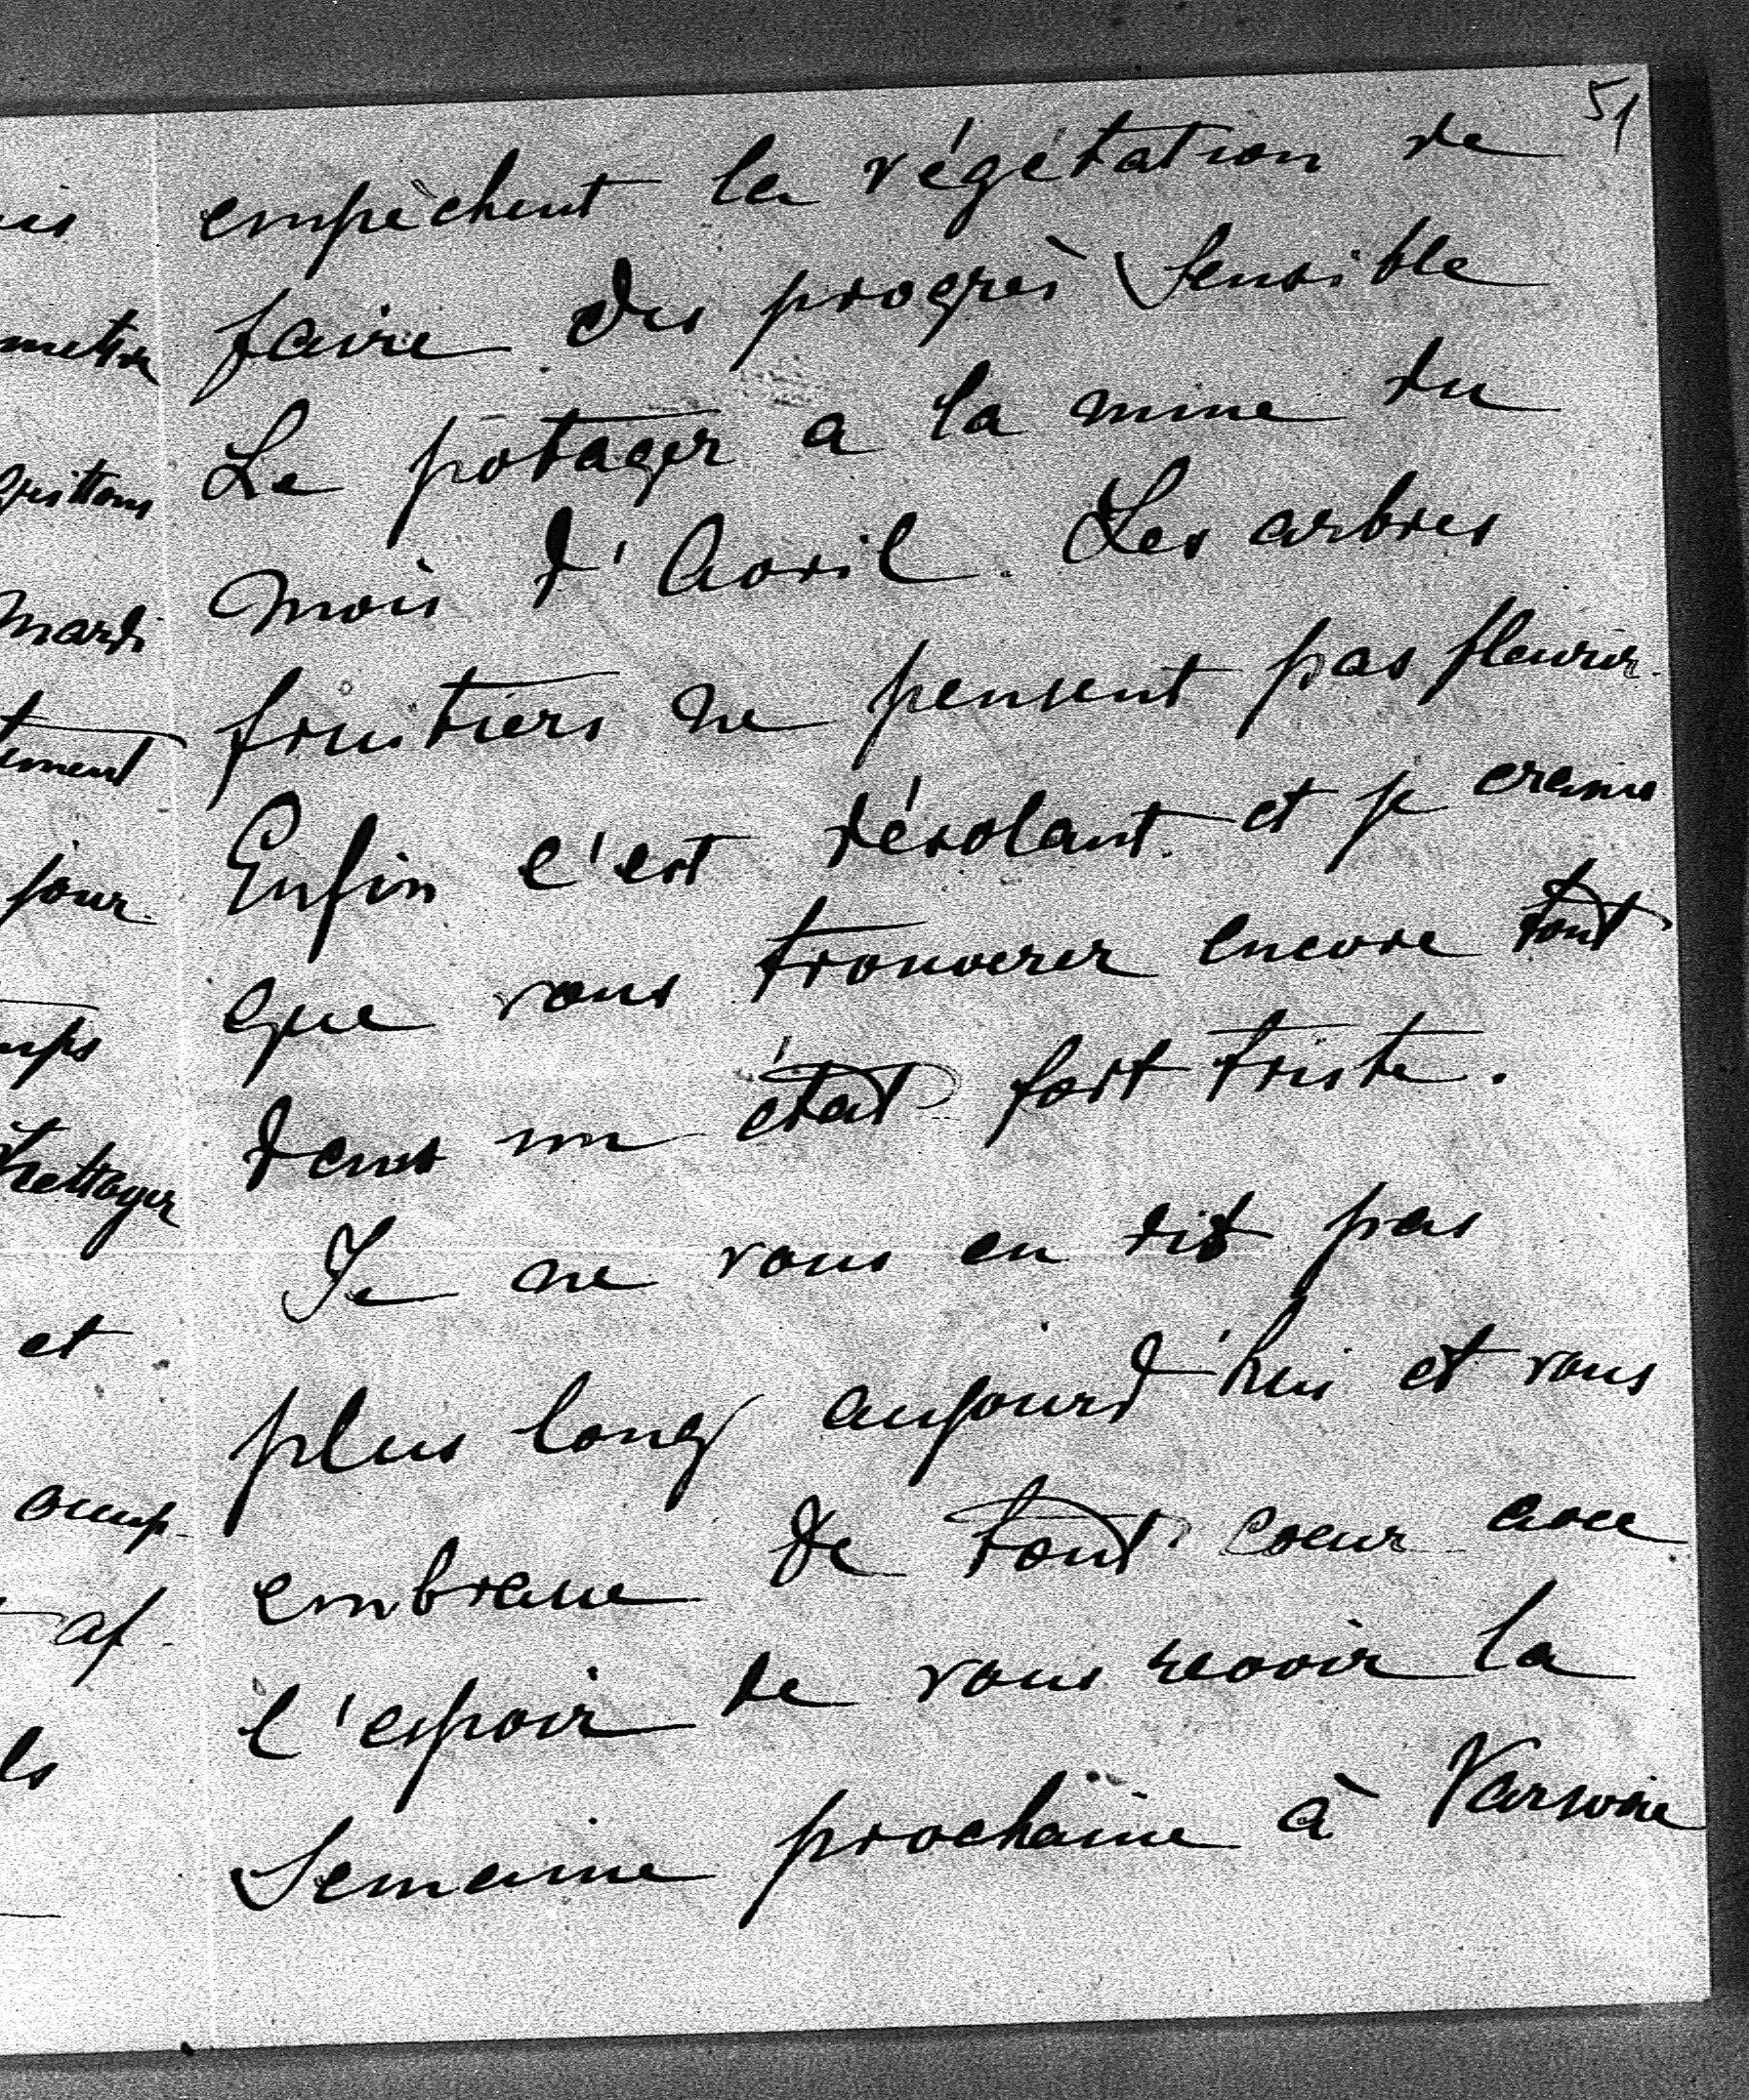 51
empèchent la végétation de
faire des progrès sensible
Le potager a la mine du
mois d'Avril. Les arbres
fruitiers ne pensent pas fleurir.
Enfin c'est désolant et je crains
que vous trouverer encore tout
dans un état fort triste.
Je ne vous en dis pas
plus long aujourd'hui et vous
embrasse de tout coeur avec
l'espoir de vous revoir la
semaine prochaine à Varsovie
mardi
jour
et